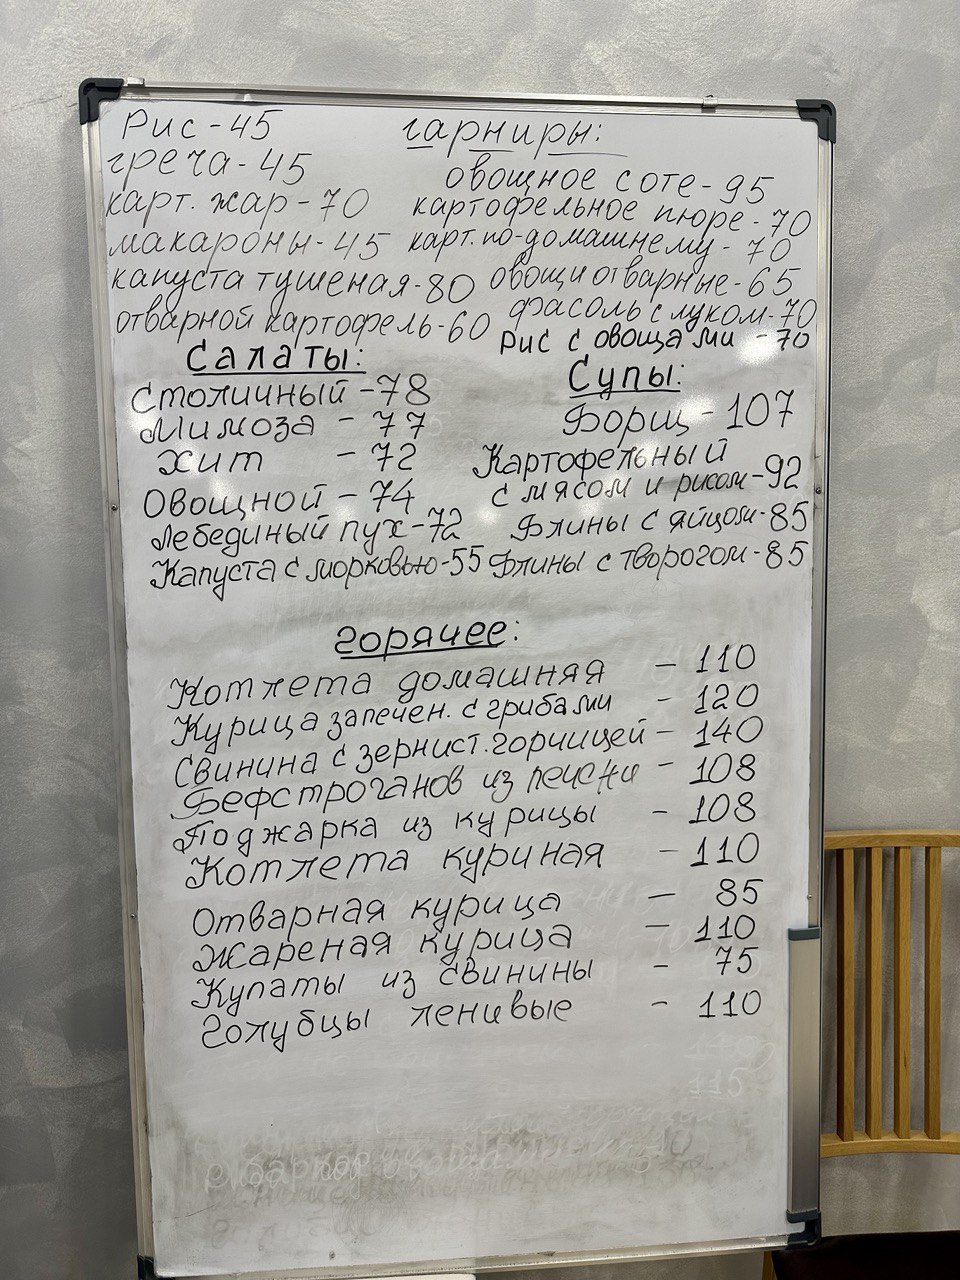 гарниры:
Рис - 45
греча - 45
карт. жар - 70
макароны - 45
капуста тушеная - 80
отварной картофель - 60
овощное соте - 95
картофельное пюре - 70
карт. по-домашнему - 70
овощи отварные - 65
фасоль с луком - 70
Рис с овощами - 70
Салаты:
Столичный - 78
Мимоза - 77
Хит - 72
Овощной - 74
Лебединый пух - 72
Капуста с морковью - 55
Супы:
Борщ - 107
Картофельный
с мясом и рисом - 92
Блины с яйцом - 85
Блины с творогом - 85
горячее:
Котлета домашняя - 110
Курица запечен. с грибами - 120
Свинина с зернист. горчицей - 140
Бефстроганов из печени - 108
Поджарка из курицы - 108
Котлета куриная - 110
Отварная курица - 85
Жареная курица - 110
Купаты из свинины - 75
Голубцы ленивые - 110